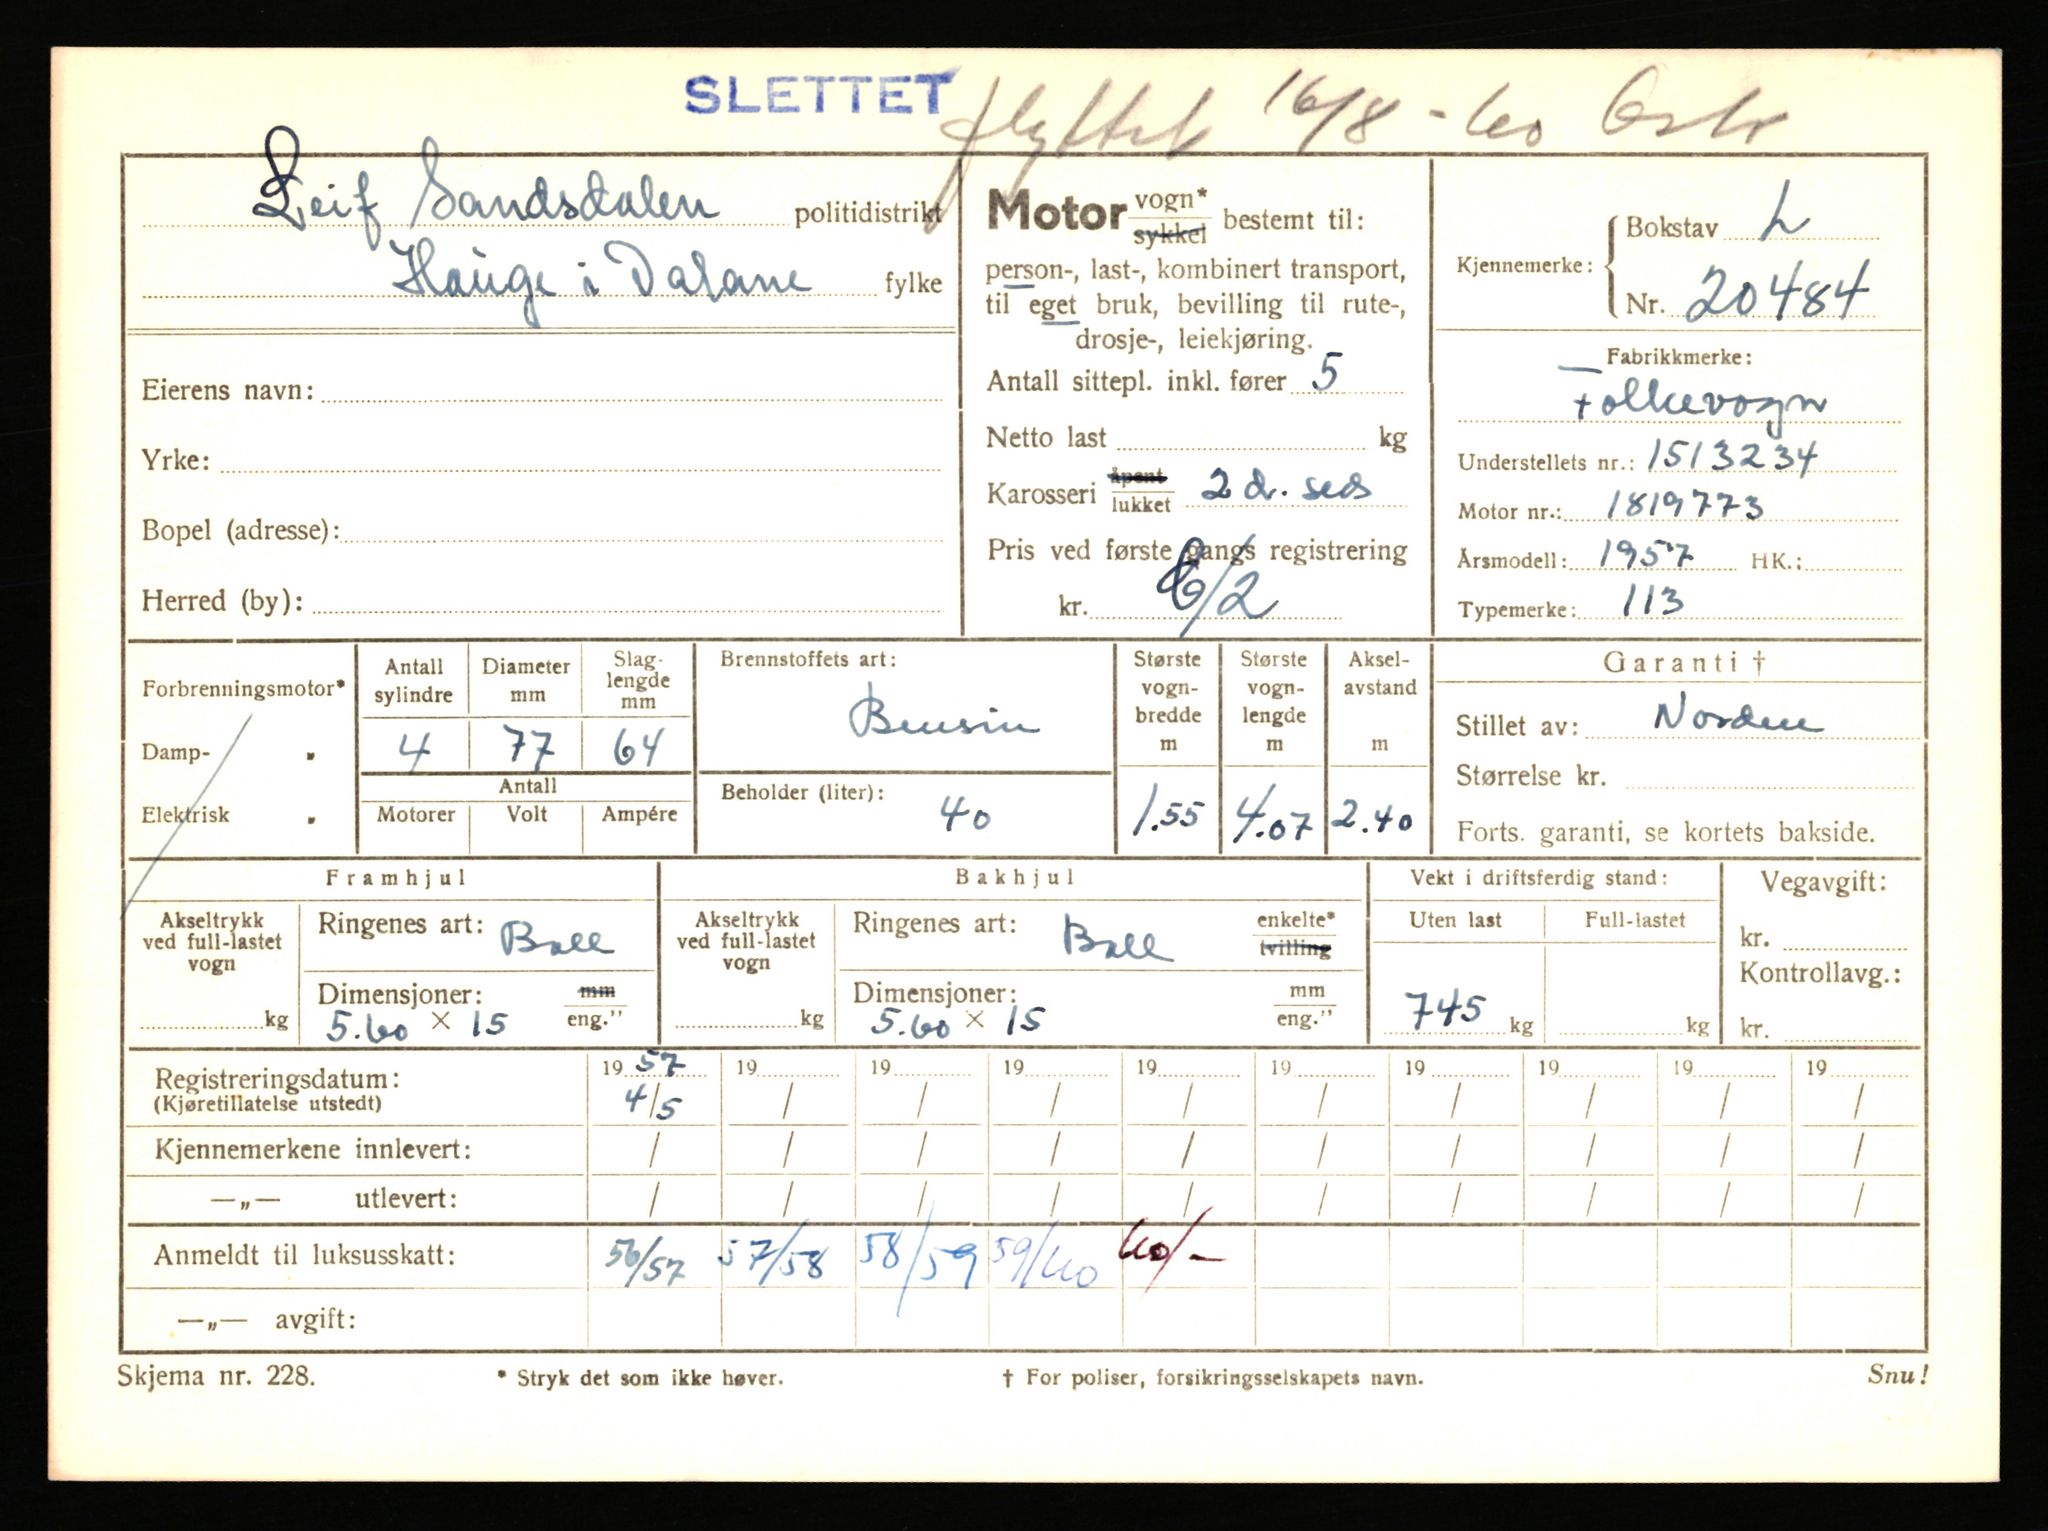 SLETTET flyttet 16/8 - 60 Oslo
Leif Sandsdalen politidistrikt
Hauge i Dalane fylke
Eierens navn:
Yrke:
Bopel (adresse):
Herred (by):
Motor vogn* sykkel bestemt til:
person-, last-, kombinert transport,
til eget bruk, bevilling til rute-,
drosje-, leiekjøring.
Antall sittepl. inkl. fører 5
Netto last kg
Karosseri åpent lukket 2 d. seds
Pris ved første gangs registrering
kr. 6/2
Kjennemerke: Bokstav L
Nr. 20484
Fabrikkmerke:
Folkevogn
Understellets nr.: 1513234
Motor nr.: 1819773
Årsmodell: 1957 HK.:
Typemerke: 113
Forbrenningsmotor*
Damp- "
Elektrisk "
Antall sylindre Diameter mm Slag-lengde mm
4 77 64
Antall
Motorer Volt Ampére
Brennstoffets art:
Bensin
Beholder (liter):
40
Største vogn-bredde m
1.55
Største vogn-lengde m
4.07
Aksel-avstand m
2.40
Garanti †
Stillet av: Norden
Størrelse kr.
Forts. garanti, se kortets bakside.
Framhjul
Akseltrykk
ved full-lastet
vogn
kg
Ringenes art: Ball
Dimensjoner: mm
5.60 × 15 eng."
Bakhjul
Akseltrykk
ved full-lastet
vogn
kg
Ringenes art: Ball enkelte* tvilling
Dimensjoner: mm
5.60 × 15 eng."
Vekt i driftsferdig stand:
Uten last Full-lastet
745 kg kg
Vegavgift:
kr.
Kontrollavg.:
kr.
Registreringsdatum: 19 57 19 19 19 19 19 19 19 19 19
(Kjøretillatelse utstedt) 4/5 / / / / / / / / /
Kjennemerkene innlevert: / / / / / / / / / /
—„— utlevert: / / / / / / / / / /
Anmeldt til luksusskatt: 56/57 57/58 58/59 59/60 60/-
—„— avgift:
Skjema nr. 228. * Stryk det som ikke høver. † For poliser, forsikringsselskapets navn. Snu!